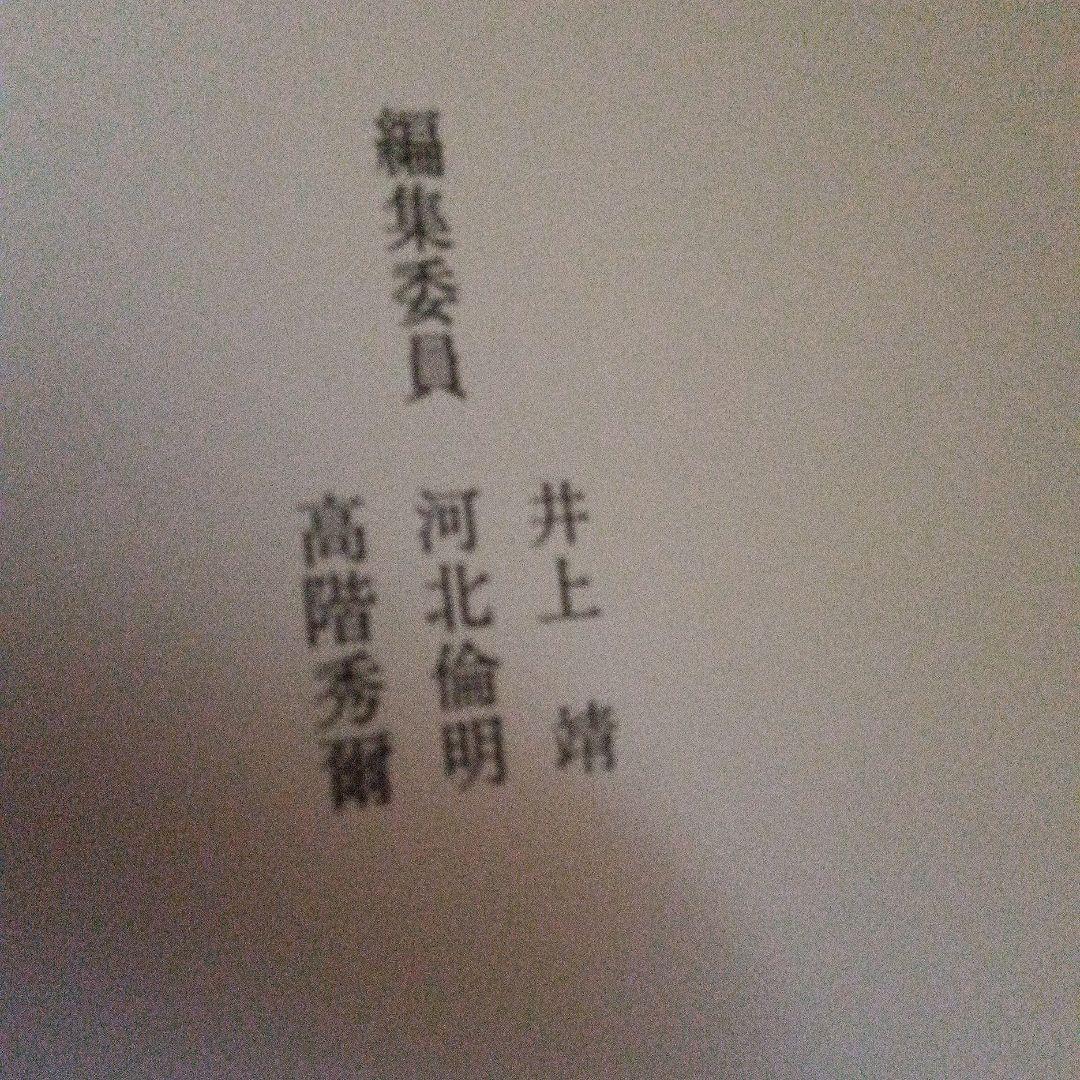 編集委員
井上 靖
河北倫明
高階秀爾